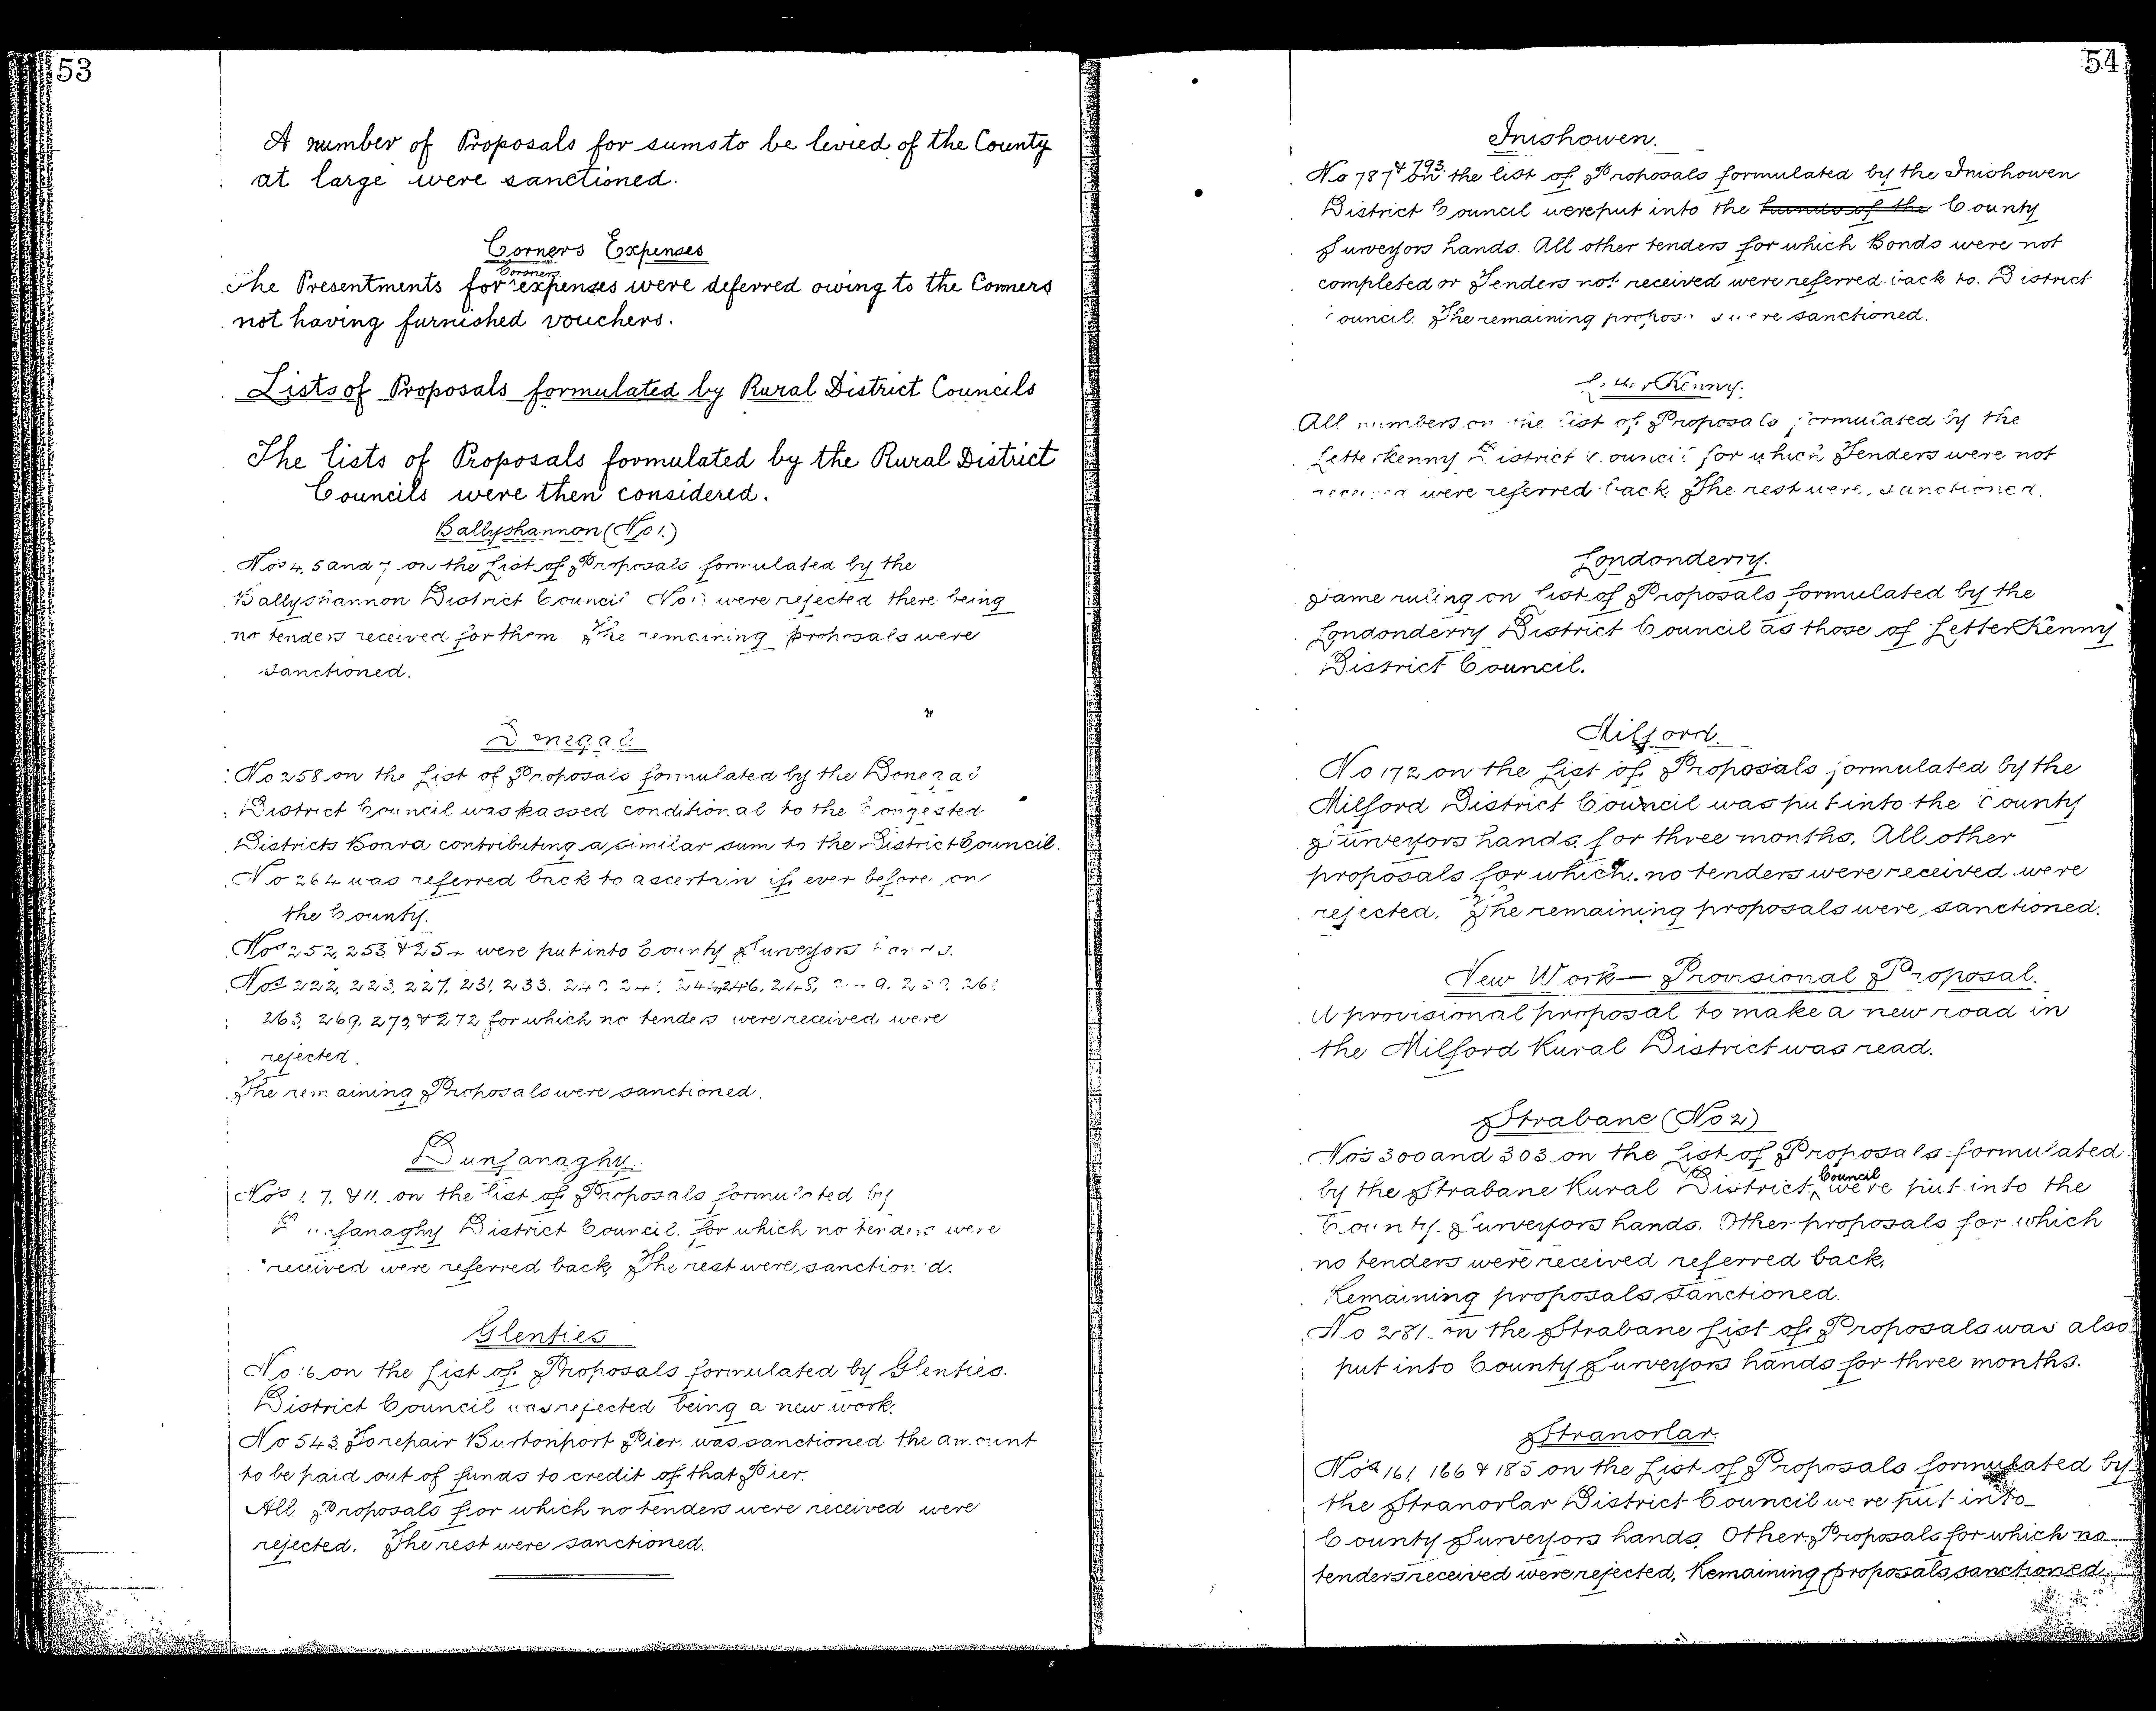 53
A number of Proposals for sums to be levied of the County
at large were sanctioned.
Corners Expenses
The Presentments for Coroners expenses were deferred owing to the Corners
not having furnished vouchers.
Lists of Proposals formulated by Rural District Councils
The lists of Proposals formulated by the Rural District
Councils were then considered.
Ballyshannon (No 1.)
Nos 4, 5 and 7 on the List of Proposals formulated by the
Ballyshannon District Council No 1) were rejected there being
no tenders received for them. The remaining proposals were
sanctioned.
Donegal.
No 258 on the List of Proposals formulated by the Donegal
District Council was passed conditional to the Congested
Districts Board contributing a similar sum to the District Council.
No 264 was referred back to ascertain if ever before on
the County.
Nos 252, 253, & were put into County Surveyors hands.
Nos 222, 223, 227, 231, 233. 246, 248, 261
263, 269, 273, & 272 for which no tenders were received were
rejected.
The remaining Proposals were sanctioned.
Dunfanaghy.
Nos 1, 7, & 11. on the list of Proposals formulated by
Dunfanaghy District Council. for which no tenders were
received were referred back, The rest were sanctioned.
Glenties
No 16 on the List of Proposals formulated by Glenties.
District Council was rejected being a new work.
No 543, To repair Burtonport Pier was sanctioned the amount
to be paid out of funds to credit of that Pier.
All Proposals for which no tenders were received were
rejected. The rest were sanctioned.
54
Inishowen.
No 787 & 793 on the list of Proposals formulated by the Inishowen
District Council were put into the hands of the County
Surveyors hands. All other tenders for which Bonds were not
completed or Tenders not received were referred back to. District
Council. The remaining proposals were sanctioned.
LetterKenny.
All numbers on the list of Proposals formulated by the
Letterkenny District Council for which Tenders were not
received were referred back. The rest were sanctioned.
Londonderry.
Same ruling on list of Proposals formulated by the
Londonderry District Council as those of LetterKenny
District Council.
Milford.
No 172 on the List of Proposals formulated by the
Milford District Council was put into the County
Surveyors hands for three months. All other
proposals for which no tenders were received were
rejected. The remaining proposals were sanctioned.
New Work — Provisional Proposal.
A provisional proposal to make a new road in
the Milford Rural District was read.
Strabane (No 2)
Nos 300 and 303 on the List of Proposals formulated
by the Strabane Rural District Council were put into the
County Surveyors hands. Other proposals for which
no tenders were received referred back.
Remaining proposals sanctioned.
No 281 on the Strabane List of Proposals was also
put into County Surveyors hands for three months.
Stranorlar.
Nos 161, 166 & 185 on the List of Proposals formulated by
the Stranorlar District Council were put into
County Surveyors hands, Other Proposals for which no
tenders received were rejected, Remaining proposals sanctioned.